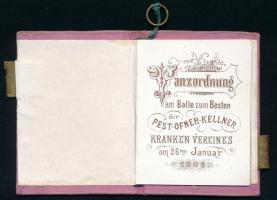 Tanzordnung
am Balle zum Besten
der
PEST-OFNER-KELLNER
KRANKEN VEREINES
am 26ten Januar